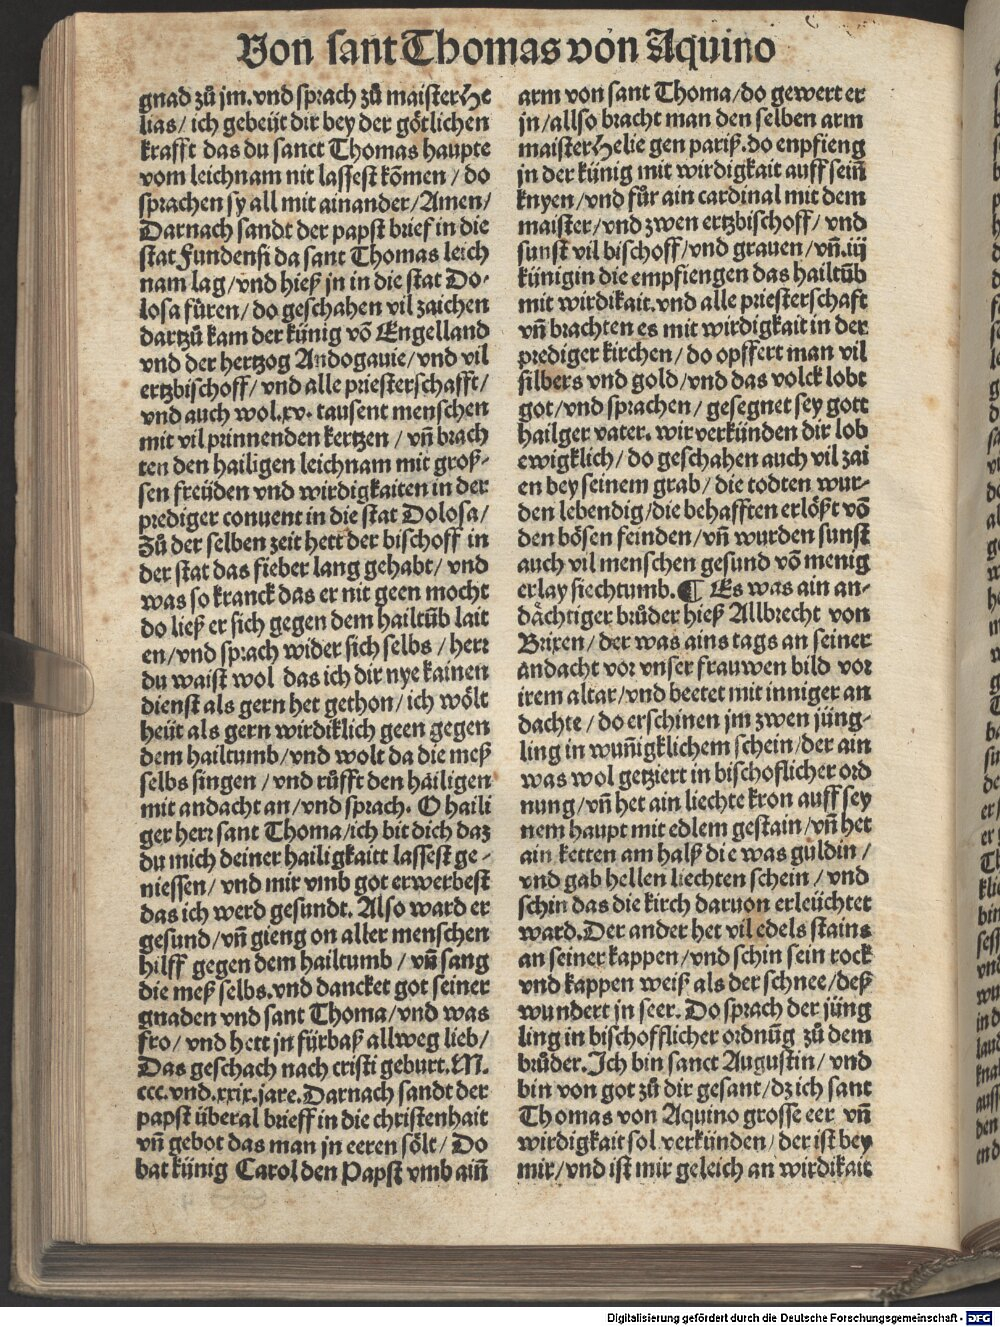 Von sant Thomas von Aquino
gnad zů jm. vnd sprach zů maister He
lias/ ich gebeüt dir bey der götlichen
krafft das du sanct Thomas haupte
vom leichnam nit lassest kōmen/ do
sprachen sy all mit ainander/ Amen/
Darnach sandt der papst brief in die
stat Fundensi da sant Thomas leich
nam lag/ vnd hieß jn in die stat Do-
losa fůren/ do geschahen vil zaichen
dartzů kam der künig vō Engelland
vnd der hertzog Andogauie/ vnd vil
ertzbischoff/ vnd alle priesterschafft/
vnd auch wol .xv. tausent menschen
mit vil prinnenden kertzen/ vn̄ brach
ten den hailigen leichnam mit groß-
sen freüden vnd wirdigkaiten in der
prediger conuent in die stat Dolosa/
Zů der selben zeit hett der bischoff in
der stat das fieber lang gehabt/ vnd
was so kranck das er nit geen mocht
do ließ er sich gegen dem hailtůb lait
en/ vnd sprach wider sich selbs/ herr
du waist wol das ich dir nye kainen
dienst als gern het gethon/ ich wölt
heüt als gern wirdiklich geen gegen
dem hailtumb/ vnd wolt da die meß
selbs singen/ vnd růfft den hailigen
mit andacht an/ vnd sprach. O haili
ger herr sant Thoma/ ich bit dich daz
du mich deiner hailigkaitt lassest ge-
niessen/ vnd mir vmb got erwerbest
das ich werd gesundt. Also ward er
gesund/ vn̄ gieng on aller menschen
hilff gegen dem hailtumb/ vn̄ sang
die meß selbs. vnd dancket got seiner
gnaden vnd sant Thoma/ vnd was
fro/ vnd hett jn fürbaß allweg lieb/
Das geschach nach cristi geburt. M.
ccc. vnd .xxix. jare. Darnach sandt der
papst überal brieff in die christenhait
vn̄ gebot das man jn eeren sölt/ Do
bat künig Carol den Papst vmb ain̄
arm von sant Thoma/ do gewert er
jn/ allso bracht man den selben arm
maister Helie gen pariß. do enpfieng
jn der künig mit wirdigkait auff sein̄
knyen/ vnd für ain cardinal mit dem
maister/ vnd zwen ertzbischoff/ vnd
sunst vil bischoff/ vnd grauen/ vn̄ .iij
künigin die empfiengen das hailtůb
mit wirdikait. vnd alle priesterschaft
vn̄ brachten es mit wirdigkait in der
prediger kirchen/ do opffert man vil
silbers vnd gold/ vnd das volck lobt
got/ vnd sprachen/ gesegnet sey gott
hailger vater. wir verkünden dir lob
ewigklich/ do geschahen auch vil zai
en bey seinem grab/ die todten wur-
den lebendig/ die behafften erlößt vō
den bösen feinden/ vn̄ wurden sunst
auch vil menschen gesund vō menig
erlay siechtumb. ¶ Es was ain an-
dächtiger brůder hieß Allbrecht von
Brixen/ der was ains tags an seiner
andacht vor vnser frauwen bild vor
irem altar/ vnd beetet mit inniger an
dachte/ do erschinen jm zwen jüng-
ling in wun̄igklichem schein/ der ain
was wol getziert in bischoflicher ord
nung/ vn̄ het ain liechte kron auff sey
nem haupt mit edlem gestain/ vn̄ het
ain ketten am halß die was guldin/
vnd gab hellen liechten schein/ vnd
schin das die kirch daruon erleüchtet
ward. Der ander het vil edels stains
an seiner kappen/ vnd schin sein rock
vnd kappen weiß als der schnee/ deß
wundert jn seer. Do sprach der jüng
ling in bischofflicher ordnūg zů dem
brůder. Ich bin sanct Augustin/ vnd
bin von got zů dir gesant/ dz ich sant
Thomas von Aquino grosse eer vn̄
wirdigkait sol verkünden/ der ist bey
mir/ vnd ist mir geleich an wirdikait
Digitalisierung gefördert durch die Deutsche Forschungsgemeinschaft - DFG